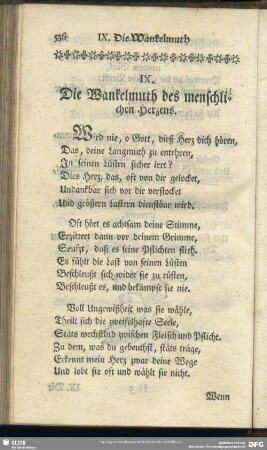 536 IX. Die Wankelmuth
IX.
Die Wankelmuth des menschli-
chen Herzens.
Wird nie, o Gott, dieß Herz dich hören,
Das, deine Langmuth zu entehren,
In seinen Lüsten sicher irrt?
Dies Herz, das, oft von dir gelocket,
Undankbar sich vor dir verstocket
Und größern Lastern dienstbar wird.
Oft hört es achtsam deine Stimme,
Erzittert dann vor deinem Grimme,
Seufzt, daß es seine Pflichten flieh.
Es fühlt die Last von seinen Lüsten
Beschleußt sich wider sie zu rüsten,
Beschleußt es, und bekämpft sie nie.
Voll Ungewißheit was sie wähle,
Theilt sich die zweifelhafte Seele,
Stäts wechselnd zwischen Fleisch und Pflicht.
Zu dem, was du gebeuthst, stäts träge,
Erkennt mein Herz zwar deine Wege
Und lobt sie oft und wählt sie nicht.
Wenn
SLUB
DFG